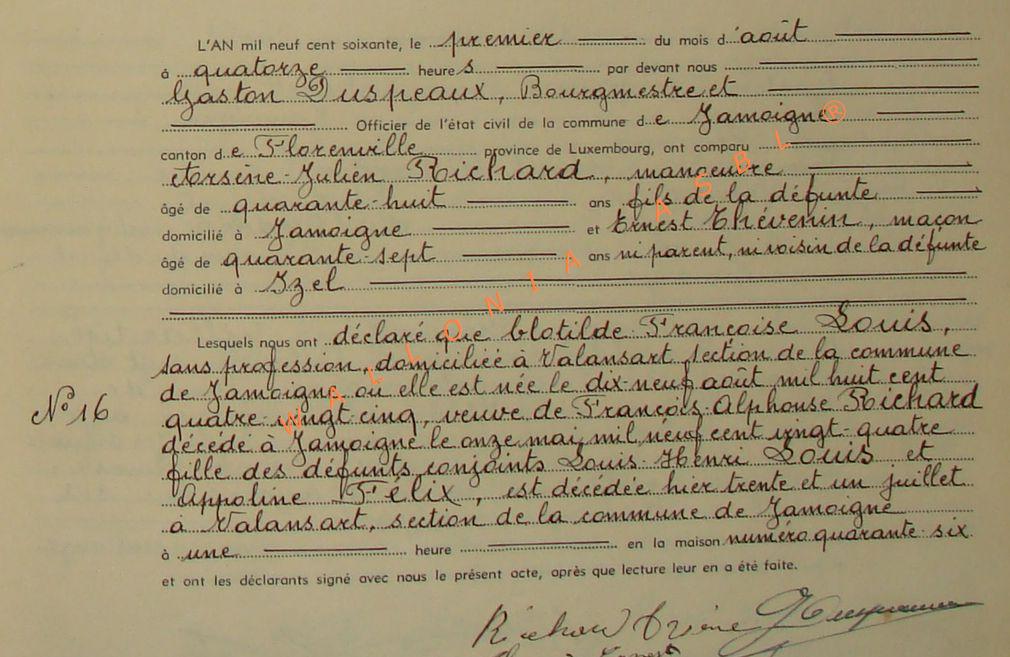 L'AN mil neuf cent soixante, le premier du mois d'août
à quatorze heures par devant nous
Gaston Duspeaux, Bourgmestre et
Officier de l'état civil de la commune de Jamoigne
canton de Florenville province de Luxembourg, ont comparu
Arsène-Julien Richard, manoeuvre
âgé de quarante-huit ans fils de la défunte
domicilié à Jamoigne et Ernest Thévenin, maçon
âgé de quarante-sept ans ni parent, ni voisin de la défunte
domicilié à Izel
Lesquels nous ont déclaré que Clotilde Françoise Louis,
sans profession, domiciliée à Valansart, section de la commune
de Jamoigne où elle est née le dix-neuf août mil huit cent
N° 16
quatre-vingt-cinq, veuve de François-Alphonse Richard
décédé à Jamoigne le onze mai mil neuf cent vingt-quatre
fille des défunts conjoints Louis-Henri Louis et
Appoline Félix, est décédée hier trente et un juillet
à Valansart, section de la commune de Jamoigne
à une heure en la maison numéro quarante-six
et ont les déclarants signé avec nous le présent acte, après que lecture leur en a été faite.
Richard Arsène
WALLONIA ASBL ®